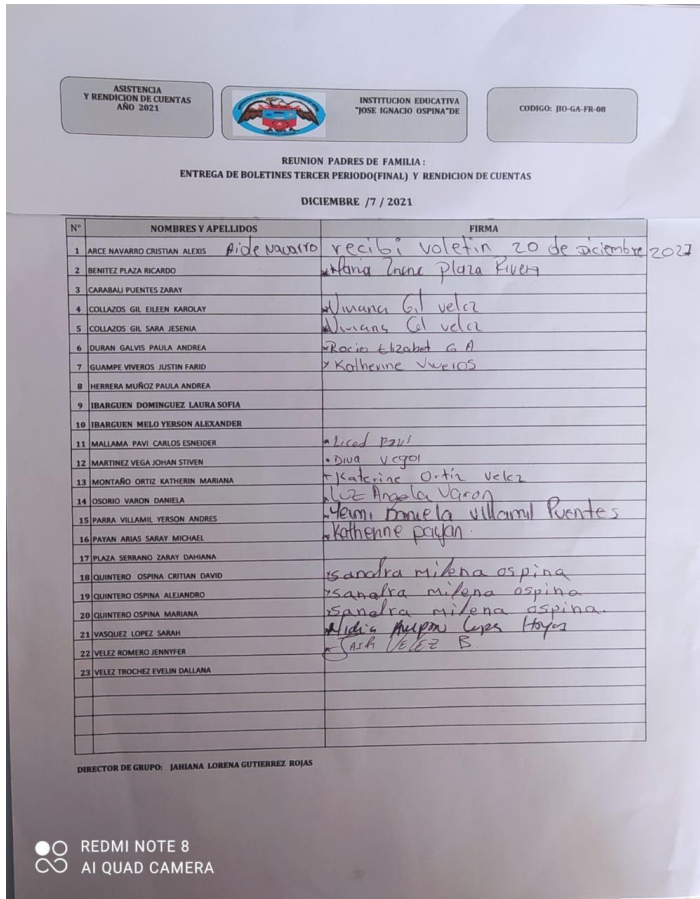 ASISTENCIA
Y RENDICION DE CUENTAS
AÑO 2021
INSTITUCION EDUCATIVA
"JOSE IGNACIO OSPINA"DE
CODIGO: JIO-GA-FR-08
REUNION PADRES DE FAMILIA :
ENTREGA DE BOLETINES TERCER PERIODO(FINAL) Y RENDICION DE CUENTAS
DICIEMBRE /7 / 2021
N° NOMBRES Y APELLIDOS FIRMA
1 ARCE NAVARRO CRISTIAN ALEXIS Aide Navarro recibi voletin 20 de Diciembre 2021
2 BENITEZ PLAZA RICARDO Maria Irene Plaza Rivera
3 CARABALI PUENTES ZARAY
4 COLLAZOS GIL EILEEN KAROLAY Viviana Gil velez
5 COLLAZOS GIL SARA JESENIA Viviana Gil velez
6 DURAN GALVIS PAULA ANDREA Rocio Elizabet G A
7 GUAMPE VIVEROS JUSTIN FARID Katherine Viveros
8 HERRERA MUÑOZ PAULA ANDREA
9 IBARGUEN DOMINGUEZ LAURA SOFIA
10 IBARGUEN MELO YERSON ALEXANDER
11 MALLAMA PAVI CARLOS ESNEIDER Liced Pavi
12 MARTINEZ VEGA JOHAN STIVEN Diva Vega
13 MONTAÑO ORTIZ KATHERIN MARIANA Katerine Ortiz Velez
14 OSORIO VARON DANIELA Luz Angela Varon
15 PARRA VILLAMIL YERSON ANDRES Yenni Daniela Villamil Puentes
16 PAYAN ARIAS SARAY MICHAEL Katherine payan.
17 PLAZA SERRANO ZARAY DAHIANA
18 QUINTERO OSPINA CRITIAN DAVID sandra milena ospina
19 QUINTERO OSPINA ALEJANDRO sandra milena ospina
20 QUINTERO OSPINA MARIANA sandra milena ospina.
21 VASQUEZ LOPEZ SARAH Nidia Lopez Hoyos
22 VELEZ ROMERO JENNYFER VELEZ B
23 VELEZ TROCHEZ EVELIN DALLANA
DIRECTOR DE GRUPO: JAHIANA LORENA GUTIERREZ ROJAS
REDMI NOTE 8
AI QUAD CAMERA